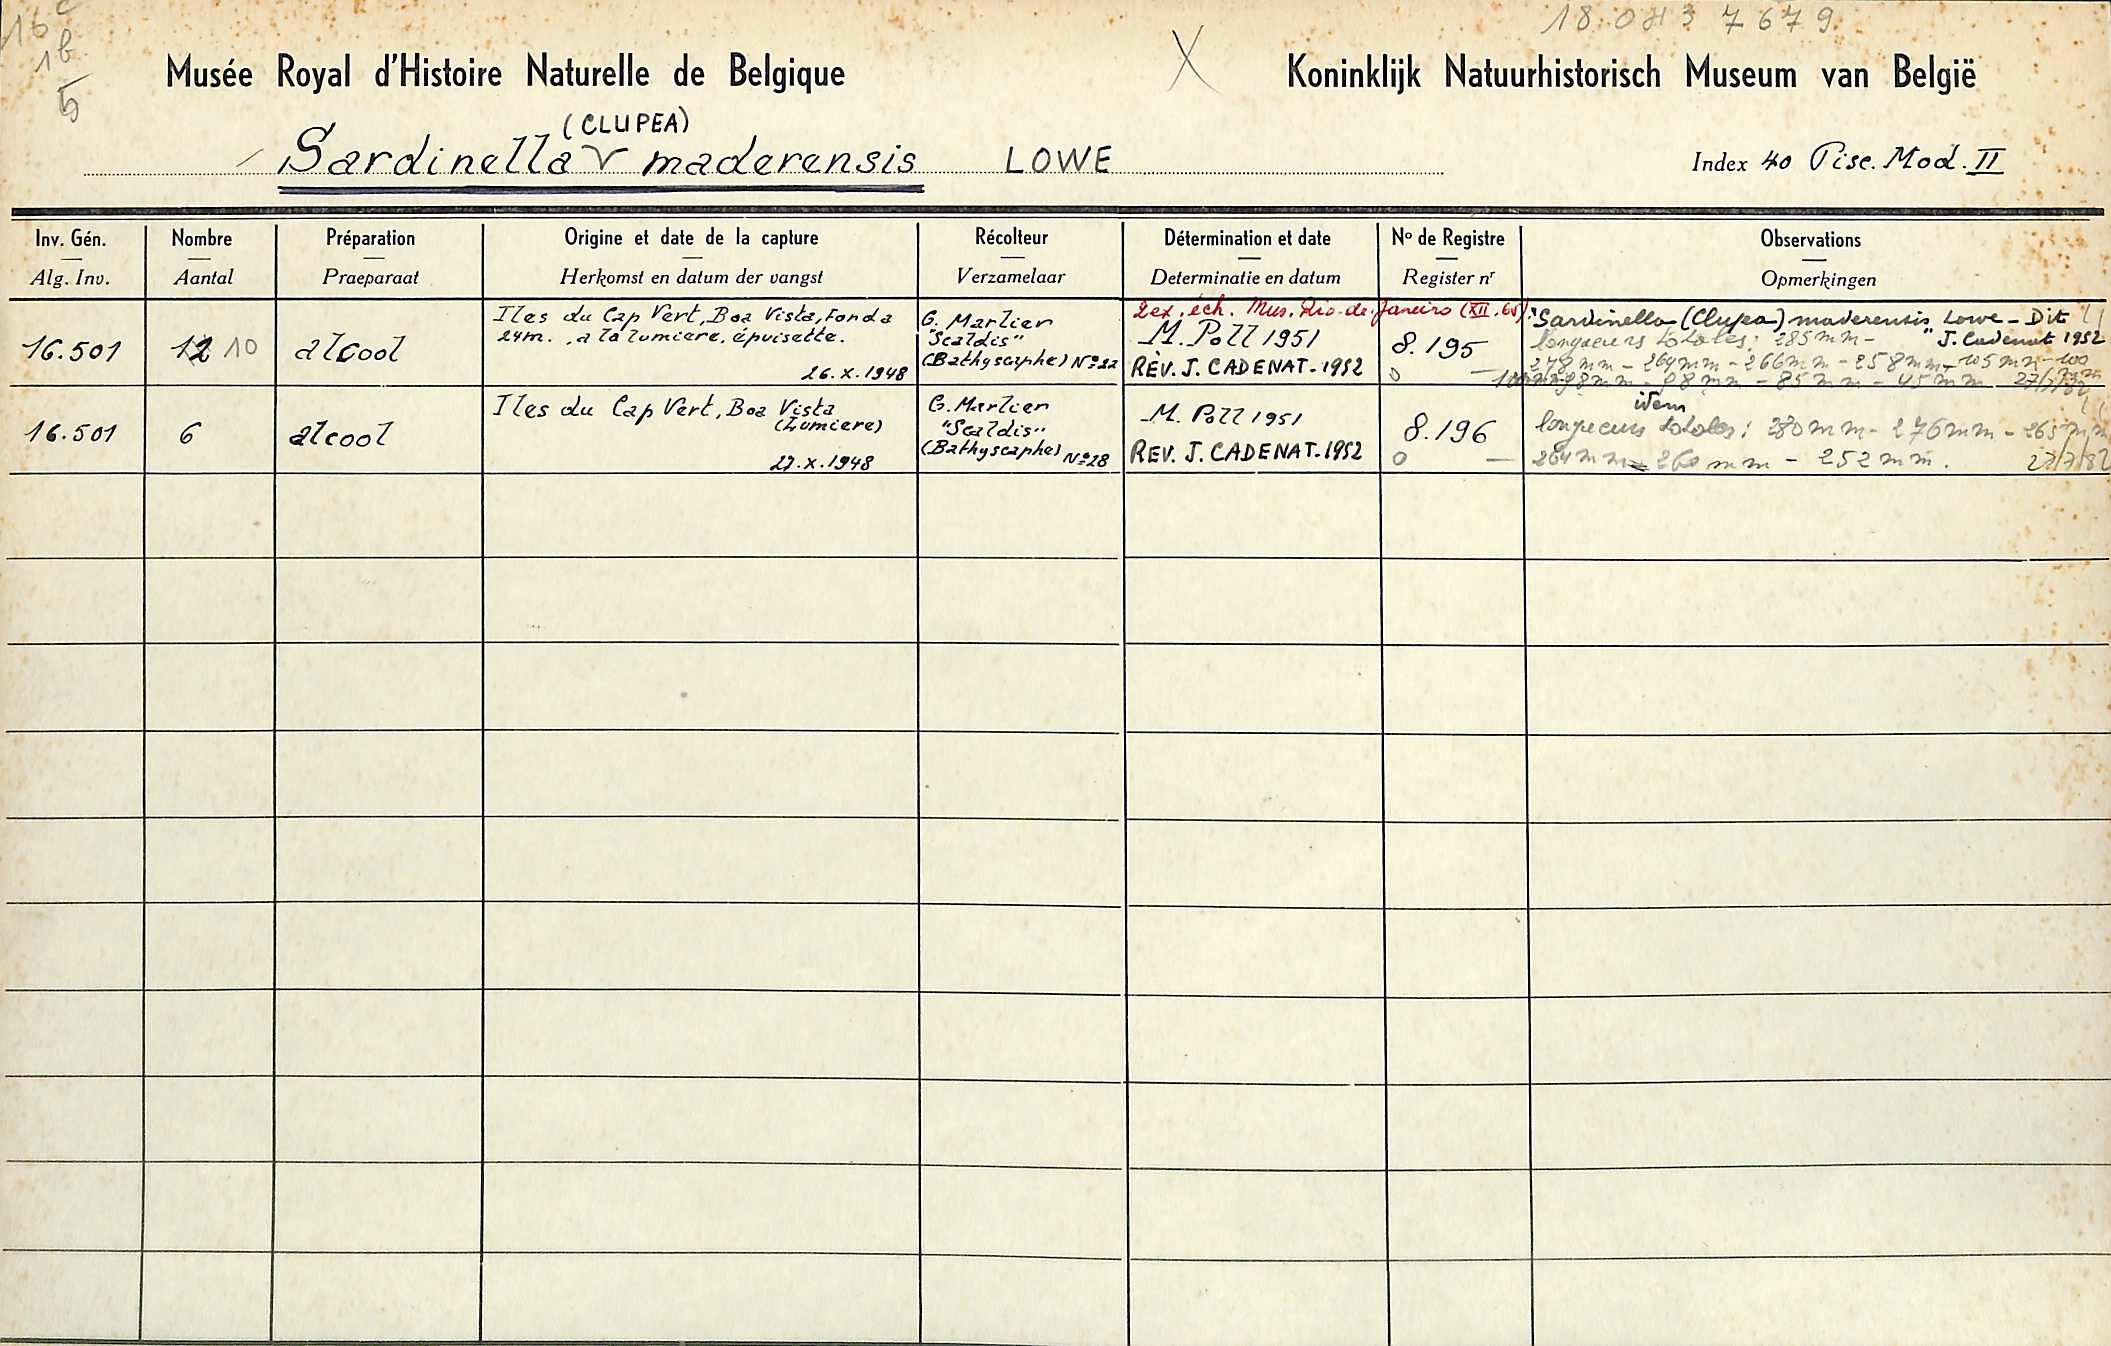 16 c
1b
5
18 0413 7679
X
Musée Royal d'Histoire Naturelle de Belgique
Koninklijk Natuurhistorisch Museum van België
(CLUPEA)
Sardinella maderensis LOWE
Index 40 Pisc. Mod. II
Inv. Gén. Nombre Préparation Origine et date de la capture Récolteur Détermination et date No de Registre Observations
Alg. Inv. Aantal Praeparaat Herkomst en datum der vangst Verzamelaar Determinatie en datum Register nr Opmerkingen
16.501
12 10
alcool
Iles du Cap Vert, Boa Vista, Fond a
24m., a la lumiere, épuisette.
26.X.1948
G. Marlier
"Scaldis"
(Bathyscaphe) No 22
2 ex. éch. Mus. Rio-de-Janeiro (XII.65)
M. Poll 1951
RÉV. J. CADENAT - 1952
8.195
"Sardinella (Clupea) maderensis Lowe - Dit
" J. Cadenat 1952
longueurs totales: 285mm -
278mm - 264mm - 266mm - 258mm - 105mm - 100
98mm - 98mm - 85mm - 45mm 27/7/82
16.501
6
alcool
Iles du Cap Vert, Boa Vista
(Lumiere)
27.X.1948
G. Marlier
"Scaldis"
(Bathyscaphe) No 28
M. Poll 1951
REV. J. CADENAT - 1952
8.196
idem
longueurs totales: 280mm - 276mm - 265mm
264mm - 260mm - 252mm. 27/7/82